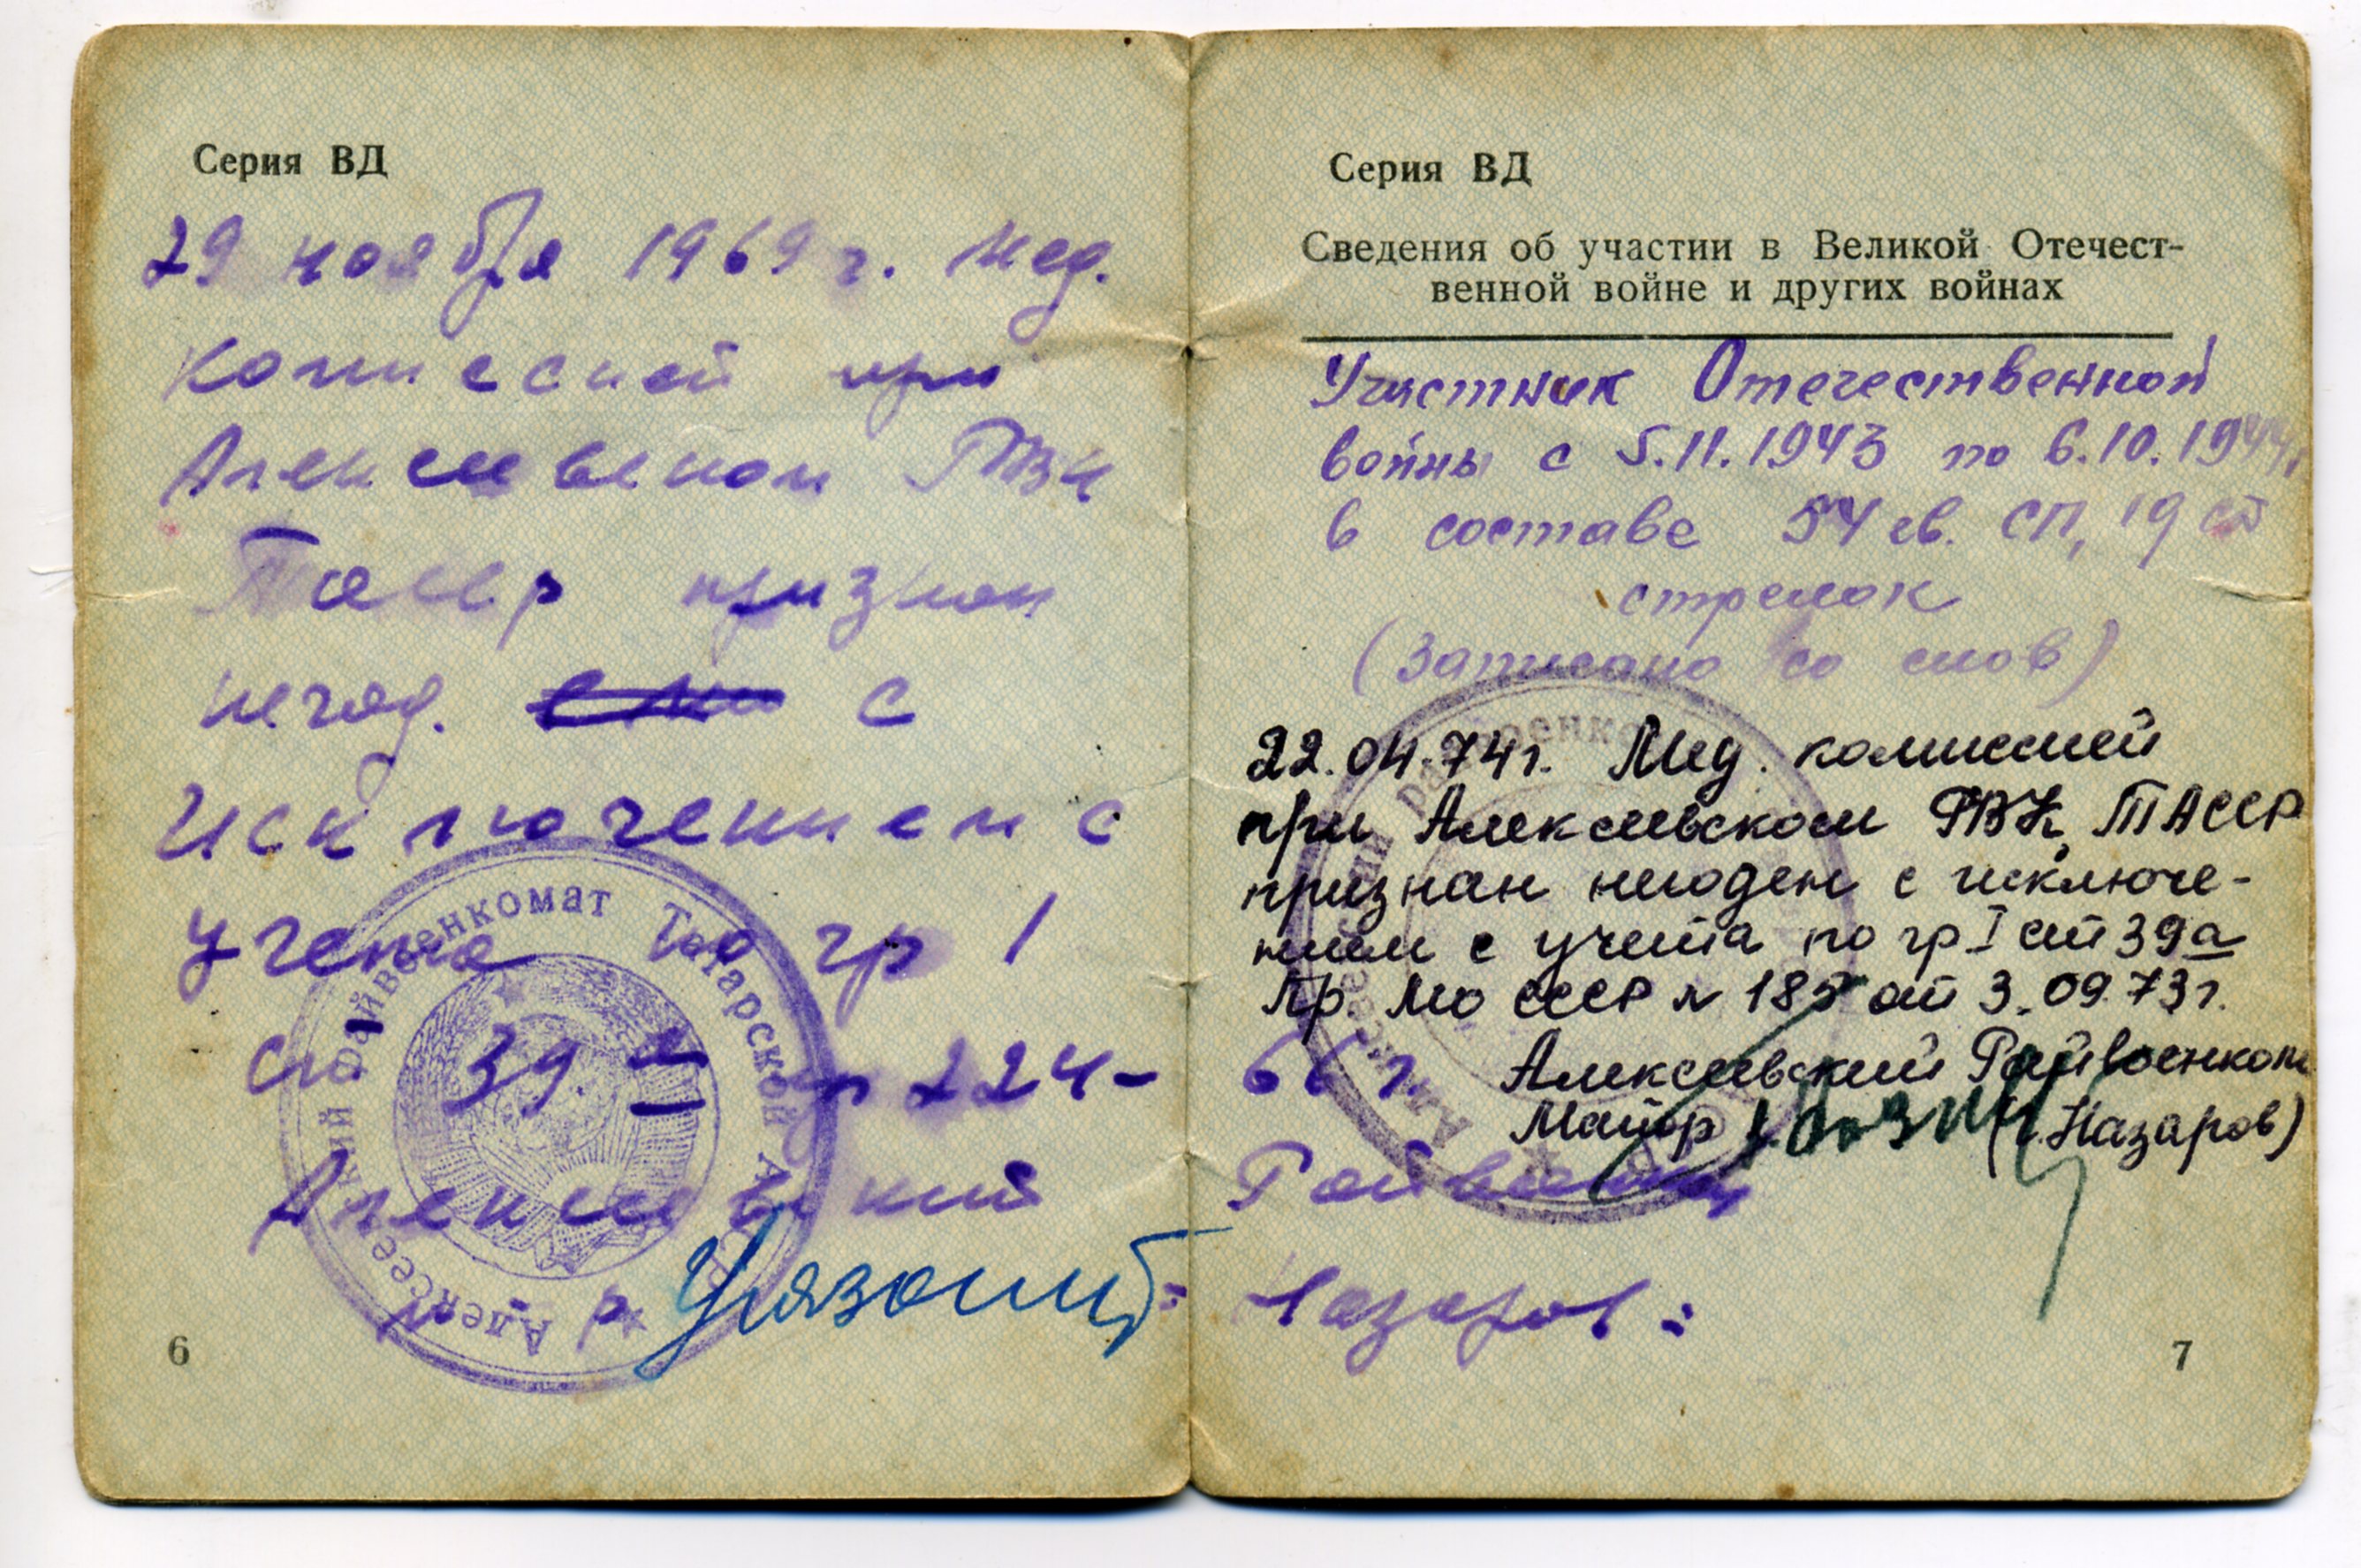 Серия ВД
29 ноября 1969 г. Мед.
комиссией при
Алексеевском РВК
ТАССР признан
негод. с
исключением с
учета по гр 1
ст 39 пр 224-
Алексеевский
м-р
Алексеевский райвоенкомат Татарской АССР
6
Серия ВД
Сведения об участии в Великой Отечест-
венной войне и других войнах
Участник Отечественной
войны с 5.11.1943 по 6.10.1944
в составе 54 гв. СП, 19 сд
стрелок
(Записано со слов)
22.04.74г. Мед. комиссией
при Алексеевском РВК ТАССР
признан негоден с исключе-
нием с учета по гр I ст 39а
Пр. МО СССР № 185 от 3.09.73г.
66 г. Алексеевский Райвоенком
Майор (Назаров)
Райвоенком
Назаров
7